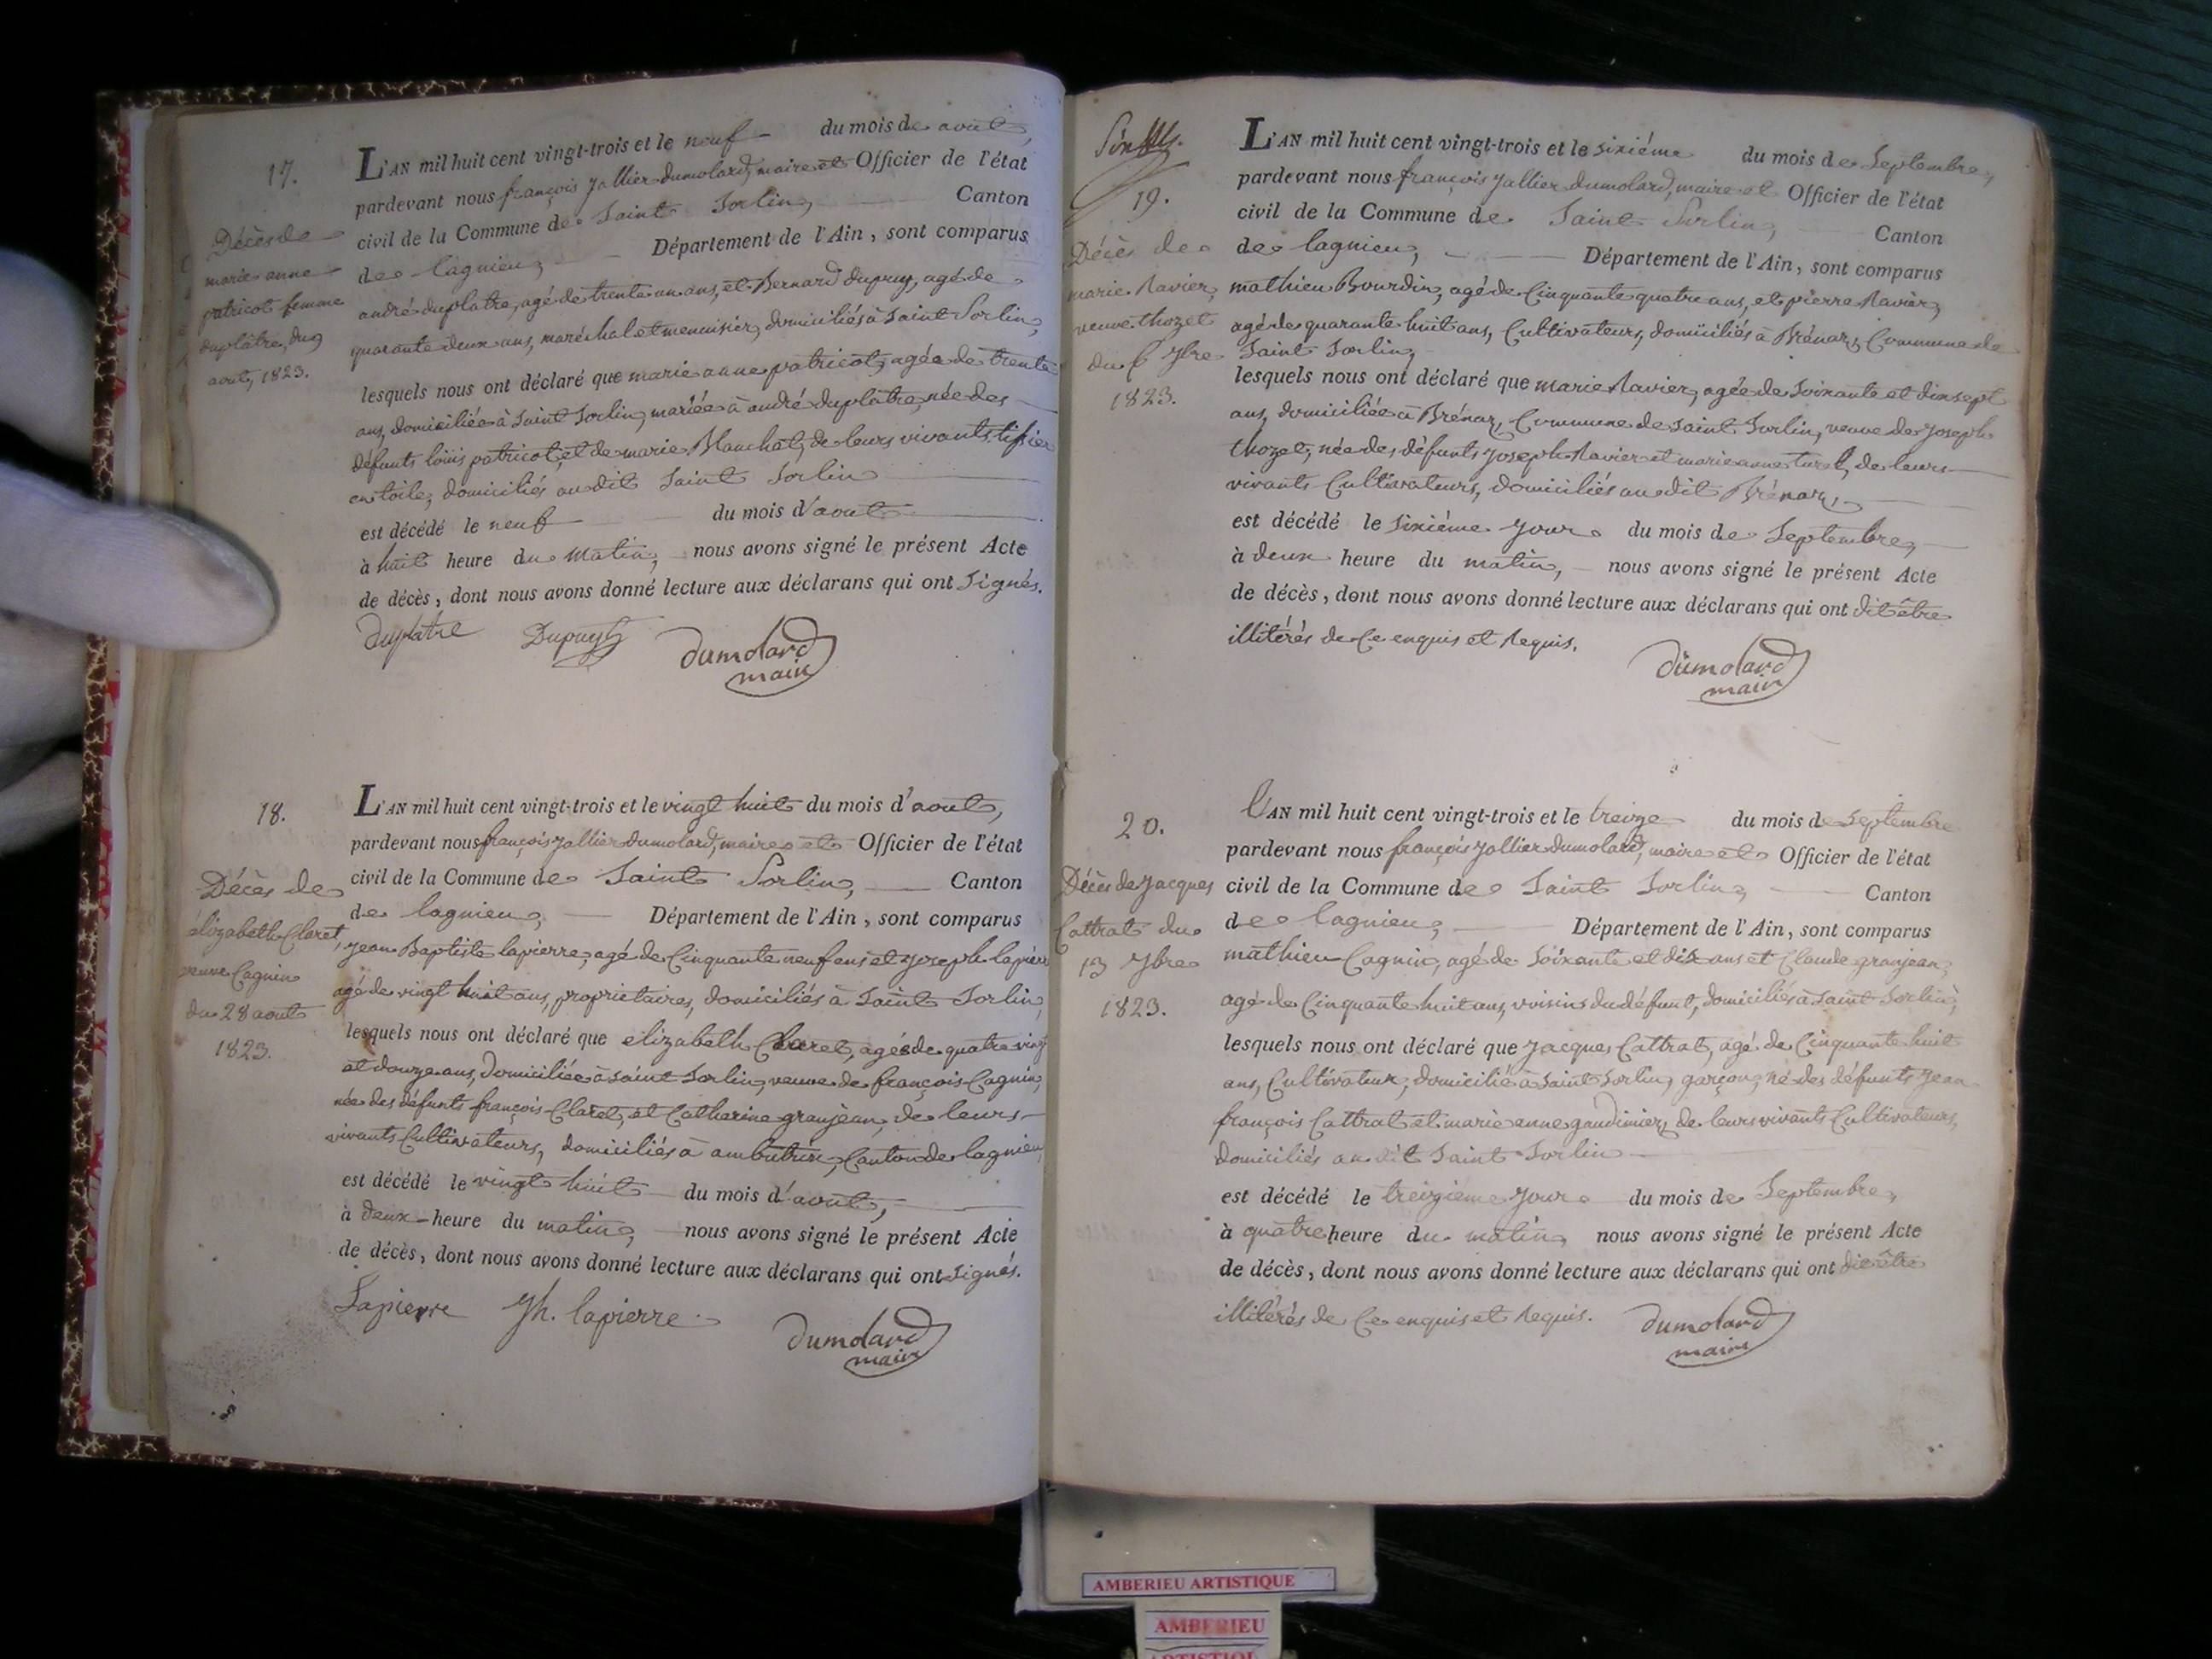 17.
Décès de
marie anne
patricot femme
duplâtre, du 9
aout, 1823.
L'AN mil huit cent vingt-trois et le neuf du mois de aout,
pardevant nous françois jallier dumolard, maire et Officier de l'état
civil de la Commune de Saint Sorlin, Canton
de lagnieu, Département de l'Ain, sont comparus
andré duplatre, agé de trente un ans, et Bernard dupuy, agé de
quarante deux ans, maréchal et menuisier, domiciliés à Saint Sorlin,
lesquels nous ont déclaré que marie anne patricot, agée de trente
ans, domiciliée à Saint Sorlin, mariée à andré duplâtre, née des
défunts loüis patricot, et de marie Blanchat, de leurs vivants tissier
en toile, domiciliés audit Saint Sorlin
est décédé le neuf du mois d'aout
à huit heure du matin, nous avons signé le présent Acte
de décès, dont nous avons donné lecture aux déclarans qui ont signés.
Duplatre Dupuy dumolard
maire
18.
Décès de
élizabeth Claret,
veuve Cagnin
du 28 aout
1823.
L'AN mil huit cent vingt-trois et le vingt huit du mois d'aout,
pardevant nous françois jallier dumolard, maire et Officier de l'état
civil de la Commune de Saint Sorlin, Canton
de lagnieu, Département de l'Ain, sont comparus
jean Baptiste lapierre, agé de Cinquante neuf ans et joseph lapierre
agé de vingt huit ans, propriétaires, domiciliés à Saint Sorlin,
lesquels nous ont déclaré que elizabeth Claret, agée de quatre vingt
et douze ans, domiciliée à saint Sorlin, veuve de françois Cagnin,
née des défunts françois Claret, et Catherine granjean, de leurs
vivants Cultivateurs, domiciliés à ambutrix, Canton de lagnieu,
est décédé le vingt huit du mois d'aout,
à deux heure du matin, nous avons signé le présent Acte
de décès, dont nous avons donné lecture aux déclarans qui ont signés.
Lapierre Jh. lapierre
dumolard
maire
19.
Décès de
marie Ravier,
veuve thozet
du 6 7bre
1823.
L'AN mil huit cent vingt-trois et le sixiéme du mois de Septembre,
pardevant nous françois jallier dumolard, maire et Officier de l'état
civil de la Commune de Saint Sorlin, Canton
de lagnieu, Département de l'Ain, sont comparus
mathieu Bourdin, agé de Cinquante quatre ans, et pierre Ravier,
agé de quarante huit ans, Cultivateurs, domiciliés à Brénaz, Commune de
Saint Sorlin,
lesquels nous ont déclaré que marie Ravier, agée de Soixante et dix sept
ans, domiciliée à Brénaz, Commune de Saint Sorlin, veuve de joseph
thozet, née des défunts joseph Ravier et marie anne turel, de leurs
vivants Cultivateurs, domiciliés audit Brénaz,
est décédé le sixiéme jour du mois de Septembre,
à deux heure du matin, nous avons signé le présent Acte
de décès, dont nous avons donné lecture aux déclarans qui ont dit être
illitérés de Ce enquis et Requis.
dumolard
maire
20.
Décès de jacques
Cattrat du
13 7bre
1823.
L'AN mil huit cent vingt-trois et le treize du mois de Septembre
pardevant nous françois jallier dumolard, maire et Officier de l'état
civil de la Commune de Saint Sorlin, Canton
de lagnieu, Département de l'Ain, sont comparus
mathieu Cagnin, agé de Soixante et dix ans et Claude granjean,
agé de Cinquante huit ans, voisins du défunt, domiciliés à Saint Sorlin,
lesquels nous ont déclaré que jacques Cattrat, agé de Cinquante huit
ans, Cultivateur, domicilié à Saint Sorlin, garçon, né des défunts jean
françois Cattrat et marie anne gaudimier, de leurs vivants Cultivateurs,
domiciliés au dit Saint Sorlin
est décédé le treiziéme jour du mois de Septembre,
à quatre heure du matin, nous avons signé le présent Acte
de décès, dont nous avons donné lecture aux déclarans qui ont dit être
illitérés de Ce enquis et Requis. dumolard
maire
AMBERIEU ARTISTIQUE
AMBERIEU